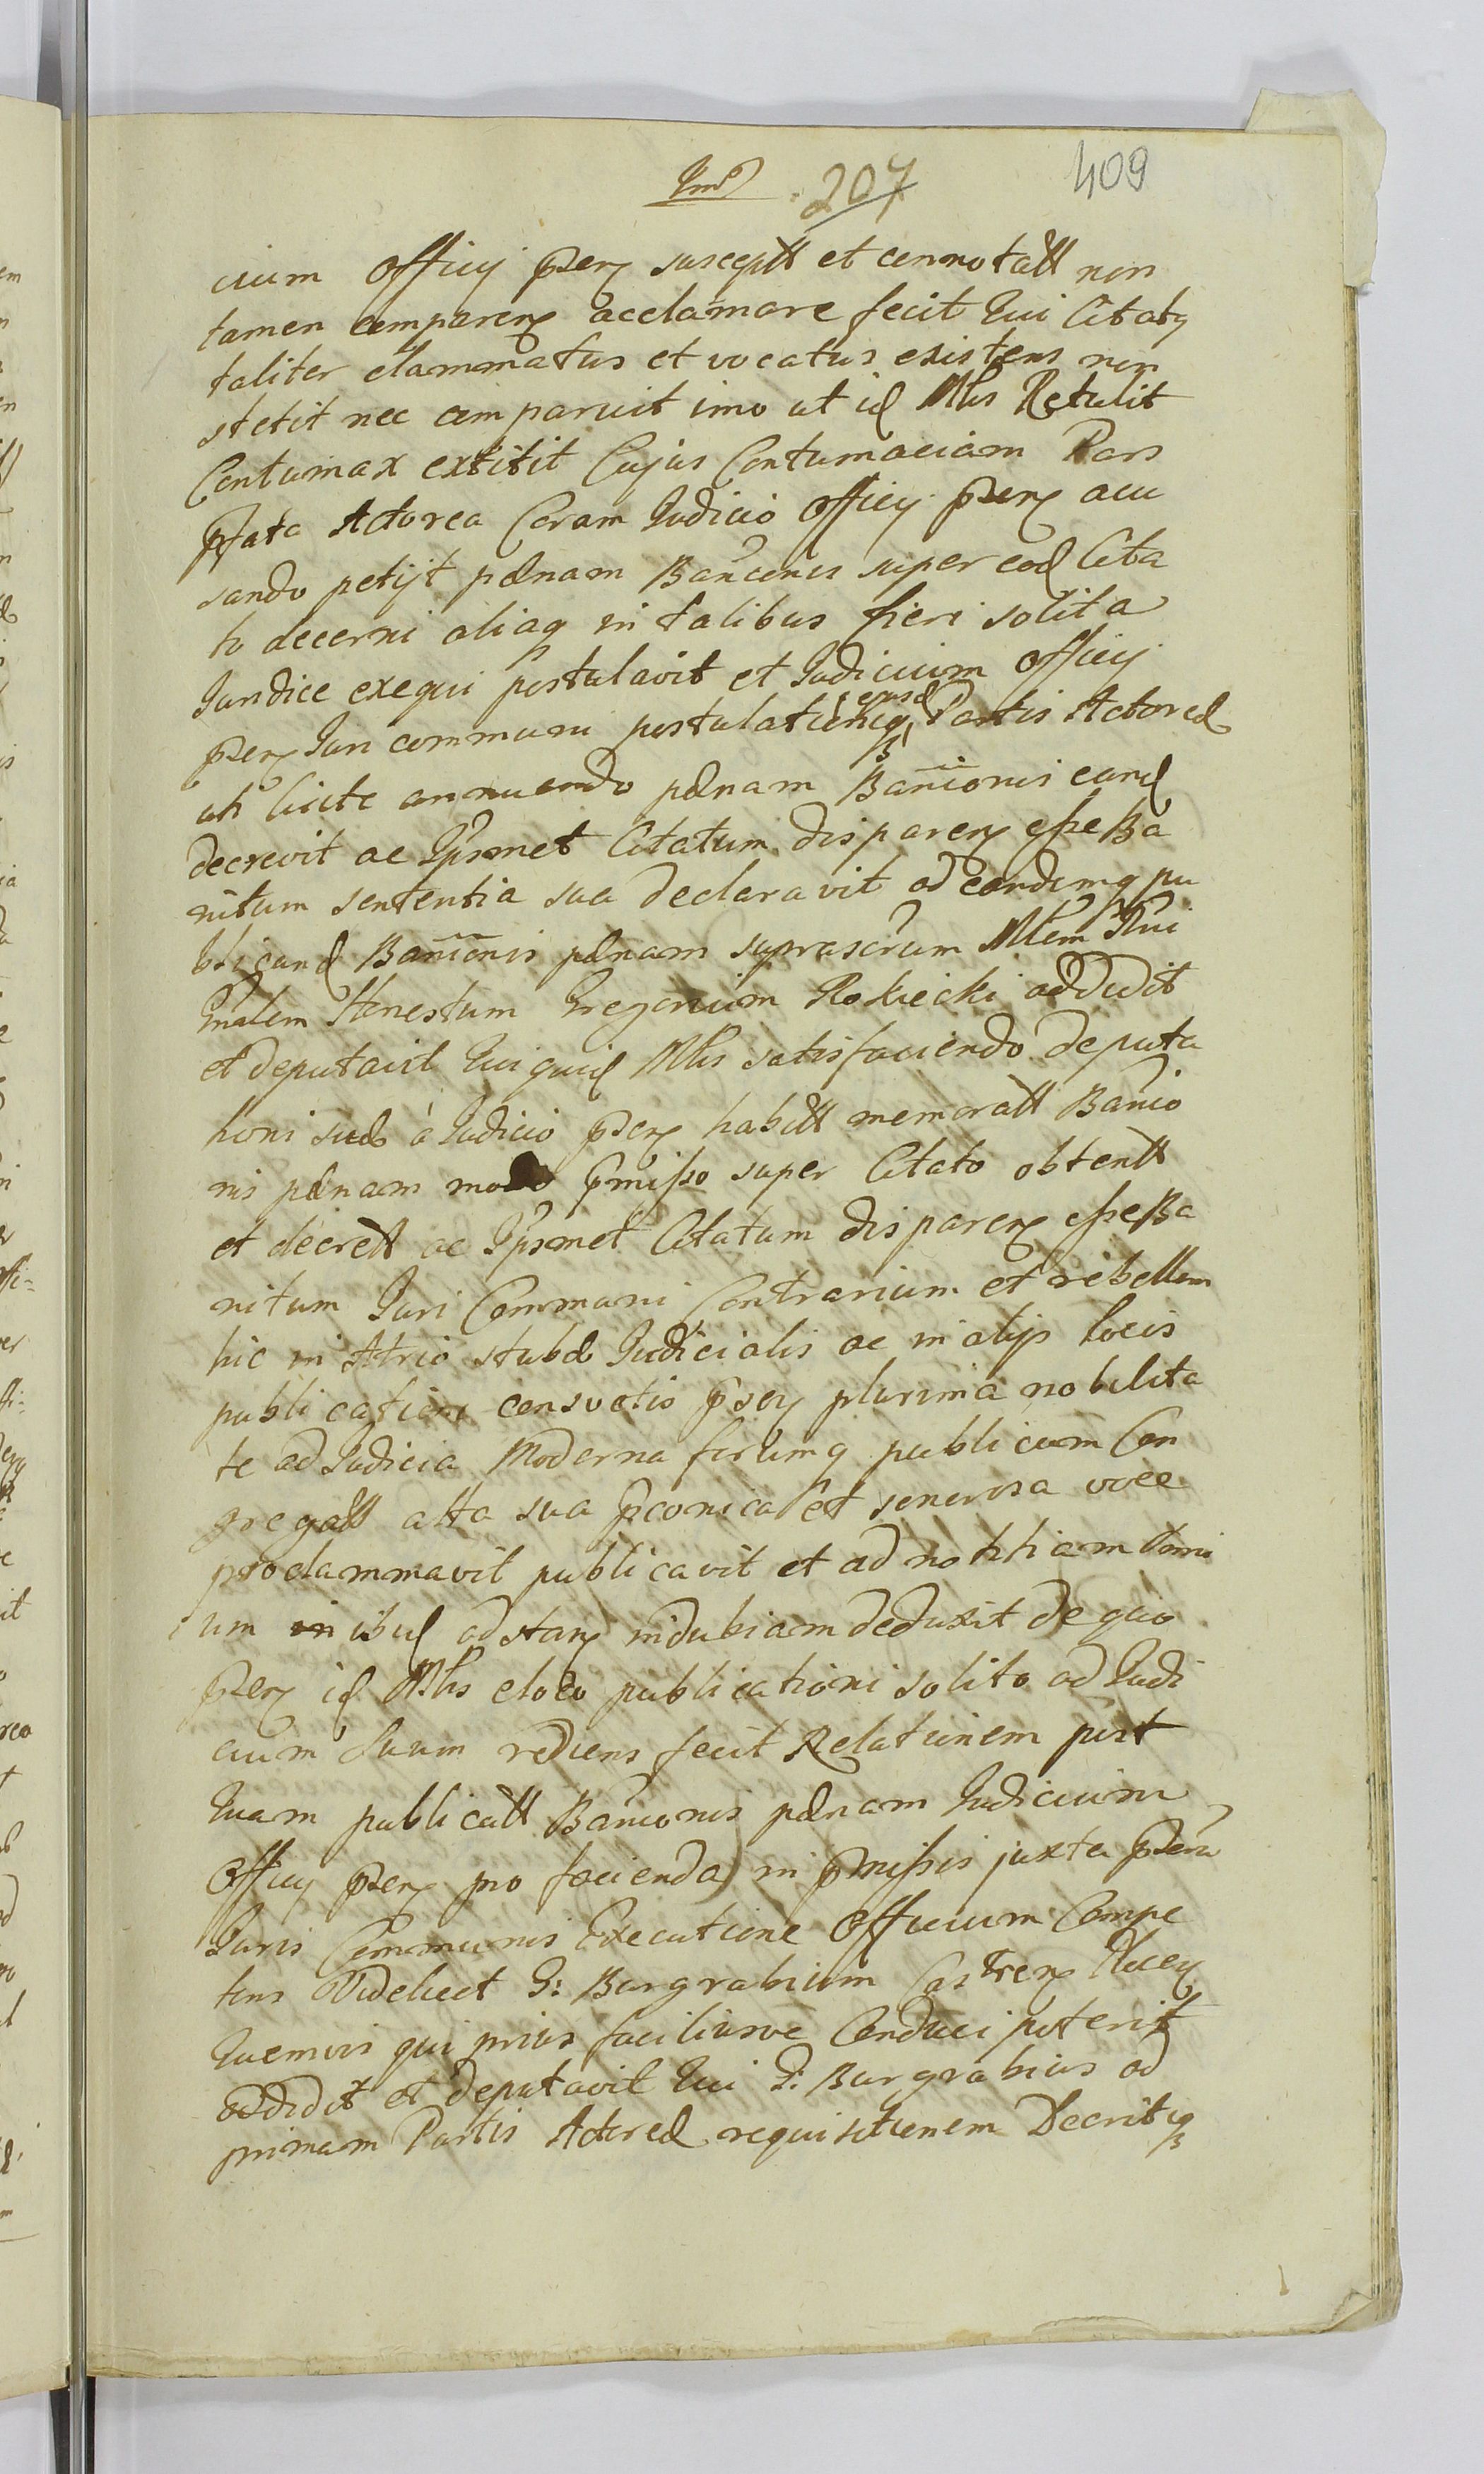 207 409
cium Officij pñs susceptt et connotatt non
tamen comparens acclamare fecit Qui Citatq
taliter clammatus et vocatus existens non
stetit nec comparuit imo ut id Mlis Retulit
Contumax extitit Cujus Contumaciam Pars
pfata Actorea Coram Judicio Officij pñs accu
sando petijt pænam Bañconis super eod Cita
to decerni aliaq in talibus fieri solita
Juridice exequi postulavit et Judicium Officij
pñs Juri communi postulationiq ejusd Partis Actoreæ
uti licite annuendo pænam Bañionis eand
decrevit ac Ipsmet Citatum disparens esse Ba
nitum sententia sua declaravit ad eandemq pu
blicand Bañionis pænam suprascrum Mlem
Gnalem Honestum Gregorium Rokiecki addidit
et deputavit Qui quid Mlis satisfaciendo deputa
tioni suæ à Judicio pñs habitt memoratt Banio
nis pænam modo pmisso super Citato obtentt
et decrett ac Ipsmet Citatum disparens esse Ba
nitum Juri Communi Contrarium et rebellem
hic in Atrio stubæ Judicialis ac in alijs locis
publicationi consvetis pñs plurima nobilita
te ad Judicia Moderna forumq publicum Con
gregatt alta sua pconica et sonorosa voce
proclammavit publicavit et ad notitiam Omni
um ibid adstans indubiam deduxit de quo
pñs id Mlis eloco publicationi solito ad Judi
cium Suum rediens fecit Relationem post
Quam publicatt Banionis pænam Judicium
Officij pñs pro facienda in pmissis juxta
Juris Communis Executione Officium Compe
tens Videlicet G: Burgrabium Castrens
Quemvis qui prius faciliusve Conduci poterit
addidit et deputavit Qui G: Burgrabius ad
primam Partis Actoreæ requisitionem